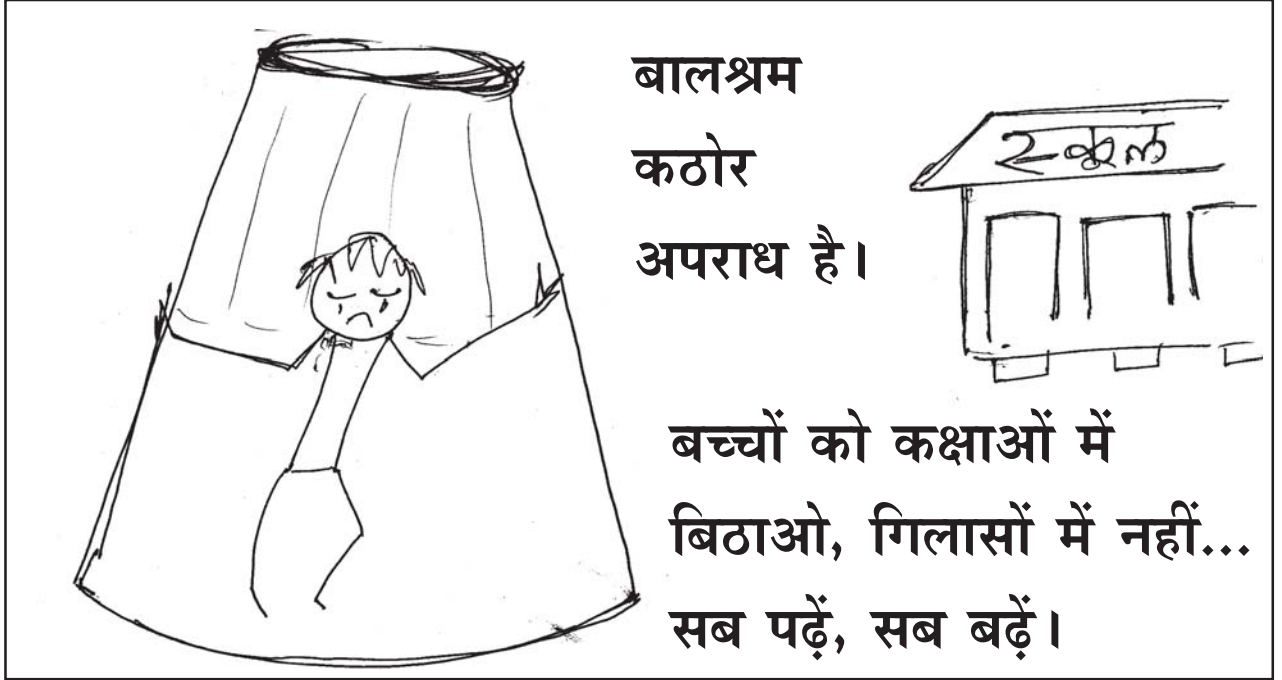 बालश्रम
कठोर
अपराध है।
स्कूल
बच्चों को कक्षाओं में
बिठाओ, गिलासों में नहीं...
सब पढ़ें, सब बढ़ें।